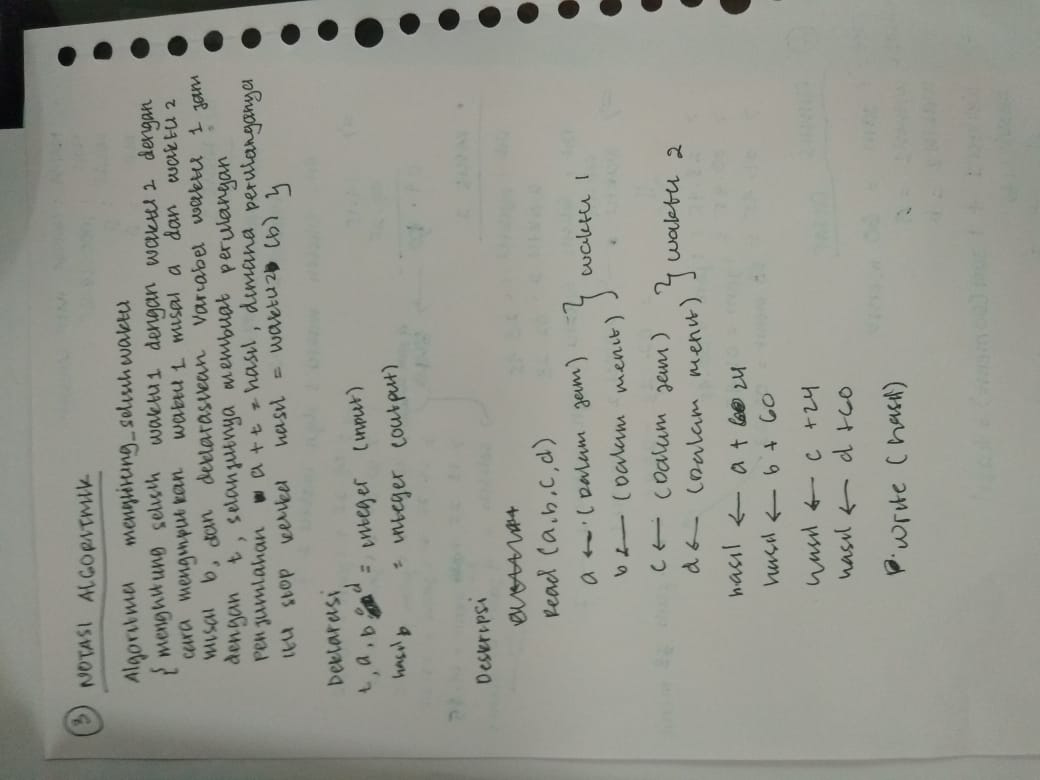 3 NOTASI ALGORITMIK
Algoritma menghitung_selisihwaktu
{ menghitung selisih waktu 1 dengan waktu 2 dengan
cara menginputkan waktu 1 misal a dan waktu 2
misal b, dan deklarasikan variabel waktu 1 jam
dengan t, selanjutnya membuat perulangan
penjumlahan a + t = hasil, dimana perulangannya
itu stop ketika hasil = waktu 2 (b) }
Deklarasi
t, a, b, c, d = integer (input)
hasil = integer (output)
Deskripsi
Read (a, b, c, d)
a ← (Dalam jam)
b ← (Dalam menit) } waktu 1
c ← (Dalam jam)
d ← (Dalam menit) } waktu 2
hasil ← a + 24
hasil ← b + 60
hasil ← c + 24
hasil ← d + 60
Write (hasil)